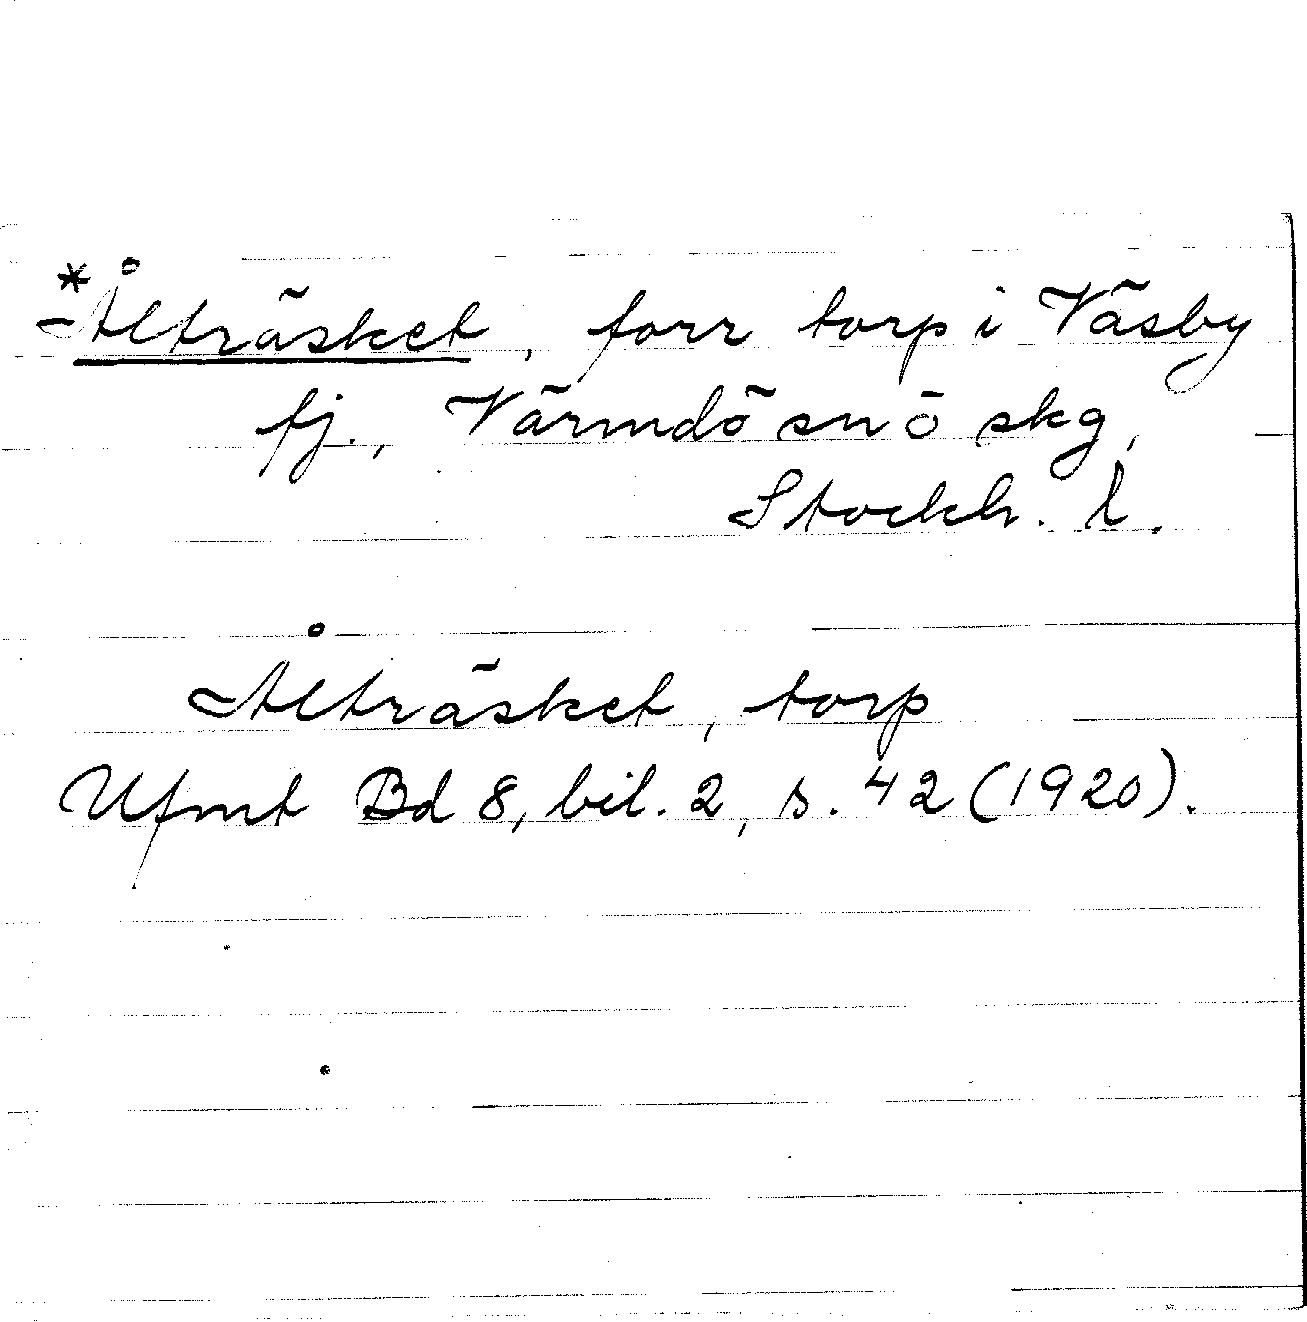 *Ålträsket, förr torp i Väsby
fj., Värmdö sn o skg,
Stockh. l.
Ålträsket, torp
Ufmt Bd 8, bil. 2, s. 42 (1920).